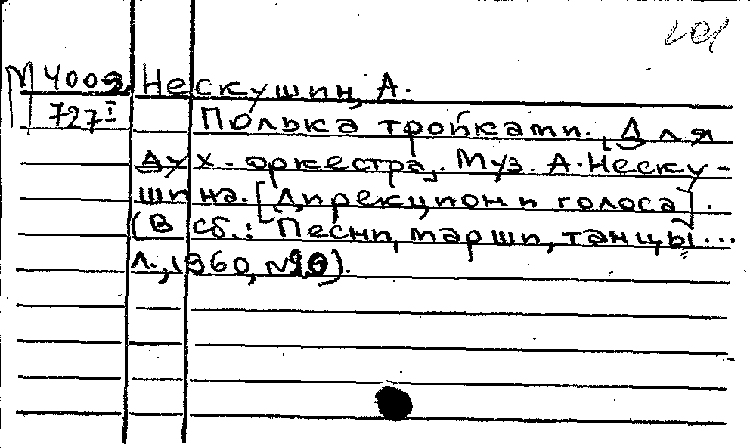 201
М 4009 Нескушин, А.
727 I Полька тройками. [Для
дух. оркестра]. Муз. А. Неску-
шина. [Дирекцион и голоса].
(В сб.: Песни, марши, танцы...
Л., 1960, №